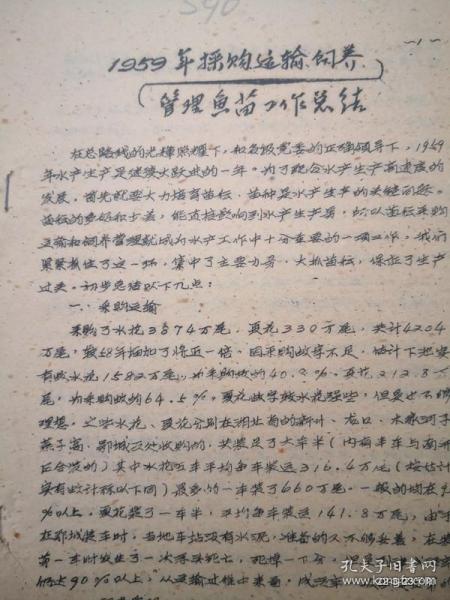 —1—
1959年採购运输饲养
管理鱼苗工作总结
在总路线的光輝照耀下，和各级党委的正确领导下，1959
年水产生产是继续大跃进的一年。为了配合水产生产高速度的
发展，首先就要大力培育苗种，苗种是水产生产的关键问题。
苗种的多少和士差，能直接影响到水产生产，所以苗种采购
运输和饲养管理就成为水产工作中十分重要的一项工作，我们
紧紧抓住了这一环，集中了主要力务，大抓苗种，保证了生产
过关。初步总结以下几点：
一、采购运输
采购了水花3874万尾，夏花330万尾，共计4204
万尾，較58年增加了将近一倍，因采购数字不足，估计下池实
有数水花1582万尾，为采购数的40.8%，夏花212.8万
尾，为采购数的64.5%。夏花数字較水花强些，但是也不够
理想。这些水花、夏花分别在湖北省的新计、龙口、木家河子
燕子窝、鄂城五处收购的，共装足了大车半（内有半车与南洲
后合装的）其中水花五车平均每车装运316.4万尾（按估计
实有数计算以下同）最多的一车装了660万尾。一般的均在9
%以上，夏花装了一车半，平均每车装运141.8万尾，由于
在鄂城装车时，当地车站没有水泥，准备的又不够妥善，在装
第一车时发生了一次浮头死亡，死掉一下分，
仍占90%以上，从运输过程上来看，成活率
孔夫子旧书网
www.kongfz.com